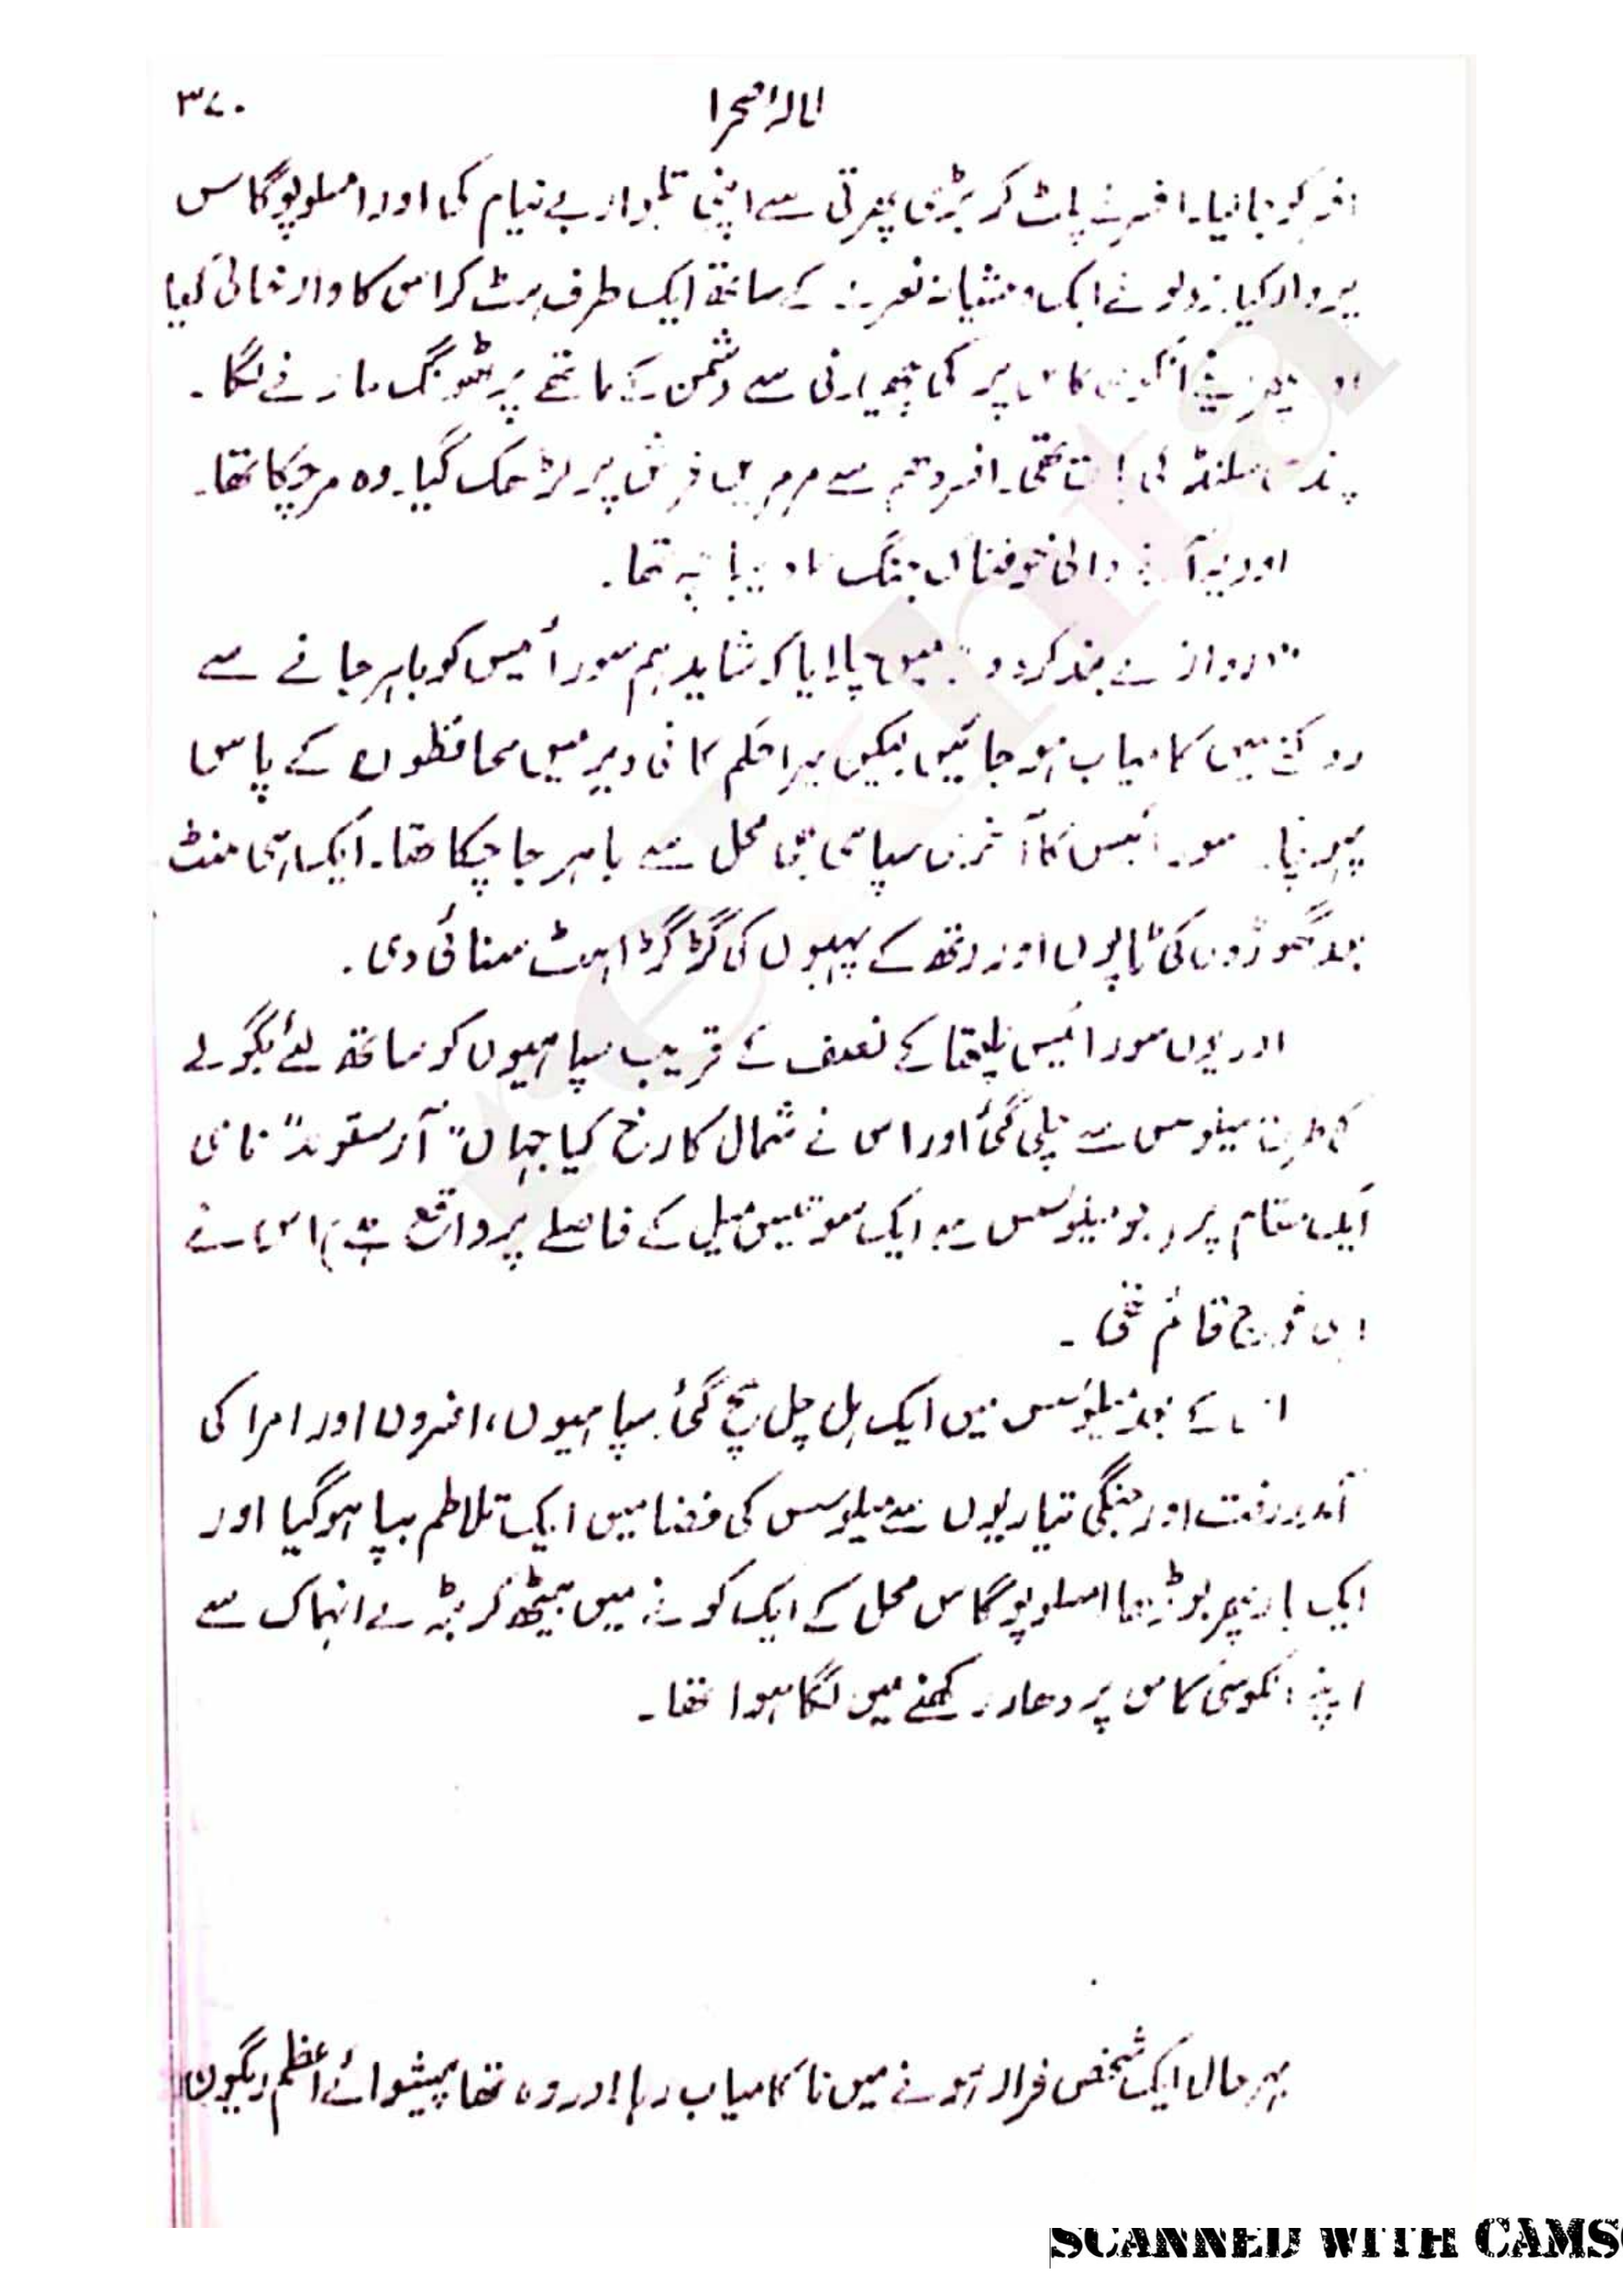 لالۂ صحرا ۳۷۰
افسر کو جا لیا۔ افسر نے پلٹ کر بڑی پھرتی سے اپنی تلوار بے نیام کی اور امسلوپوگاس
پر وار کیا۔ زولو نے ایک وحشیانہ نعرے کے ساتھ ایک طرف ہٹ کر اس کا وار خالی کیا
اور پھر اپنے انکوسی کاس پر کی سے دشمن کے ماتھے پر ٹھونگ مارنے لگا۔
چند سیکنڈ کی بات تھی۔ افسر دھم سے مرمریں فرش پر لڑھک گیا۔ وہ مر چکا تھا۔
اور یہ آنے والی خوفناک جنگ کا دیباچہ تھا۔
"دروازے بند کر دو" میں چلایا کہ شاید ہم سورائیس کو باہر جانے سے
روکنے میں کامیاب ہو جائیں لیکن میرا حکم کافی دیر میں محافظوں کے پاس
پہونچا۔ سورائیس کا آخری سپاہی بھی محل سے باہر جا چکا تھا۔ ایک ہی منٹ
بعد گھوڑوں کی ٹاپوں اور رتھ کے پہیوں کی گڑگڑاہٹ سنائی دی۔
اور یوں سورائیس نصف کے قریب سپاہیوں کو ساتھ لئے بگولے
کی طرح میلوسس سے چلی گئی اور اس نے شمال کا رخ کیا جہاں "آرستوند" نامی
ایک مقام پر (جو میلوسس سے ایک سو تیس میل کے فاصلے پر واقع ہے) اس نے
اپنی فوج قائم تھی۔
اس کے بعد میلوسس میں ایک ہل چل مچ گئی۔ سپاہیوں، افسروں اور امرا کی
آمد و رفت اور جنگی تیاریوں سے میلوسس کی فضا میں ایک تلاطم بپا ہو گیا اور
ایک بار پھر بوڑھا امسلوپوگاس محل کے ایک کونے میں بیٹھ کر بڑے انہماک سے
اپنے انکوسی کاس پر دھار رکھنے میں لگا ہوا تھا۔
بہر حال ایک شخص فرار ہونے میں ناکامیاب رہا اور وہ تھا پیشوائے اعظم ایگون
SCANNED WITH CAMS